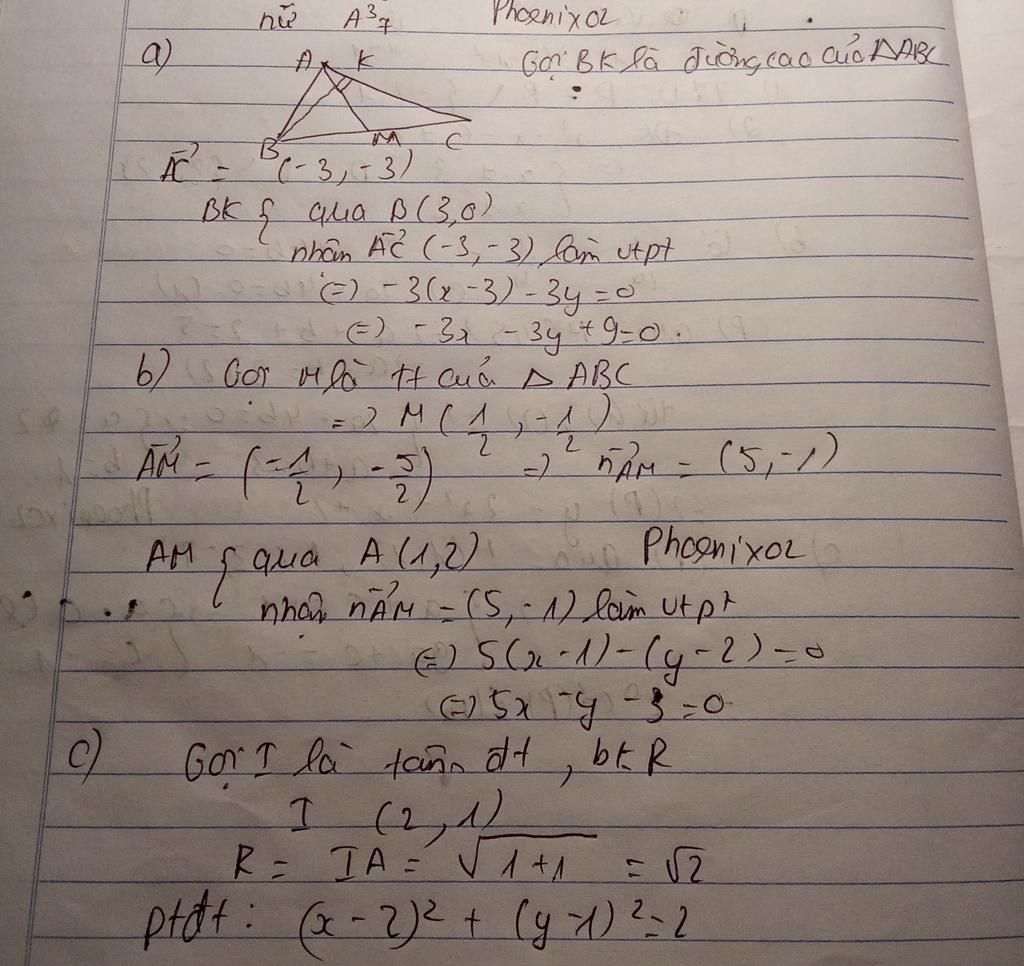 nữ A³₇ Phoenix02
a) A K Gọi BK là đường cao của ΔABC
B M C
AC⃗ = (-3, -3)
BK { qua B(3,0)
nhân AC⃗ (-3, -3) làm vtpt
(=) -3(x-3) - 3y = 0
(=) -3x - 3y + 9 = 0.
b) Gọi M là tt của Δ ABC
=) M (1/2, -1/2)
AM⃗ = (-1/2, -5/2) =) n⃗AM = (5, -1)
AM { qua A(1,2) Phoenix02
nhân n⃗AM = (5, -1) làm vtpt
(=) 5(x-1) - (y-2) = 0
(=) 5x - y - 3 = 0
c) Gọi I là tâm đt, bk R
I (2, 1)
R = IA = √1+1 = √2
ptđt: (x-2)² + (y-1)² = 2